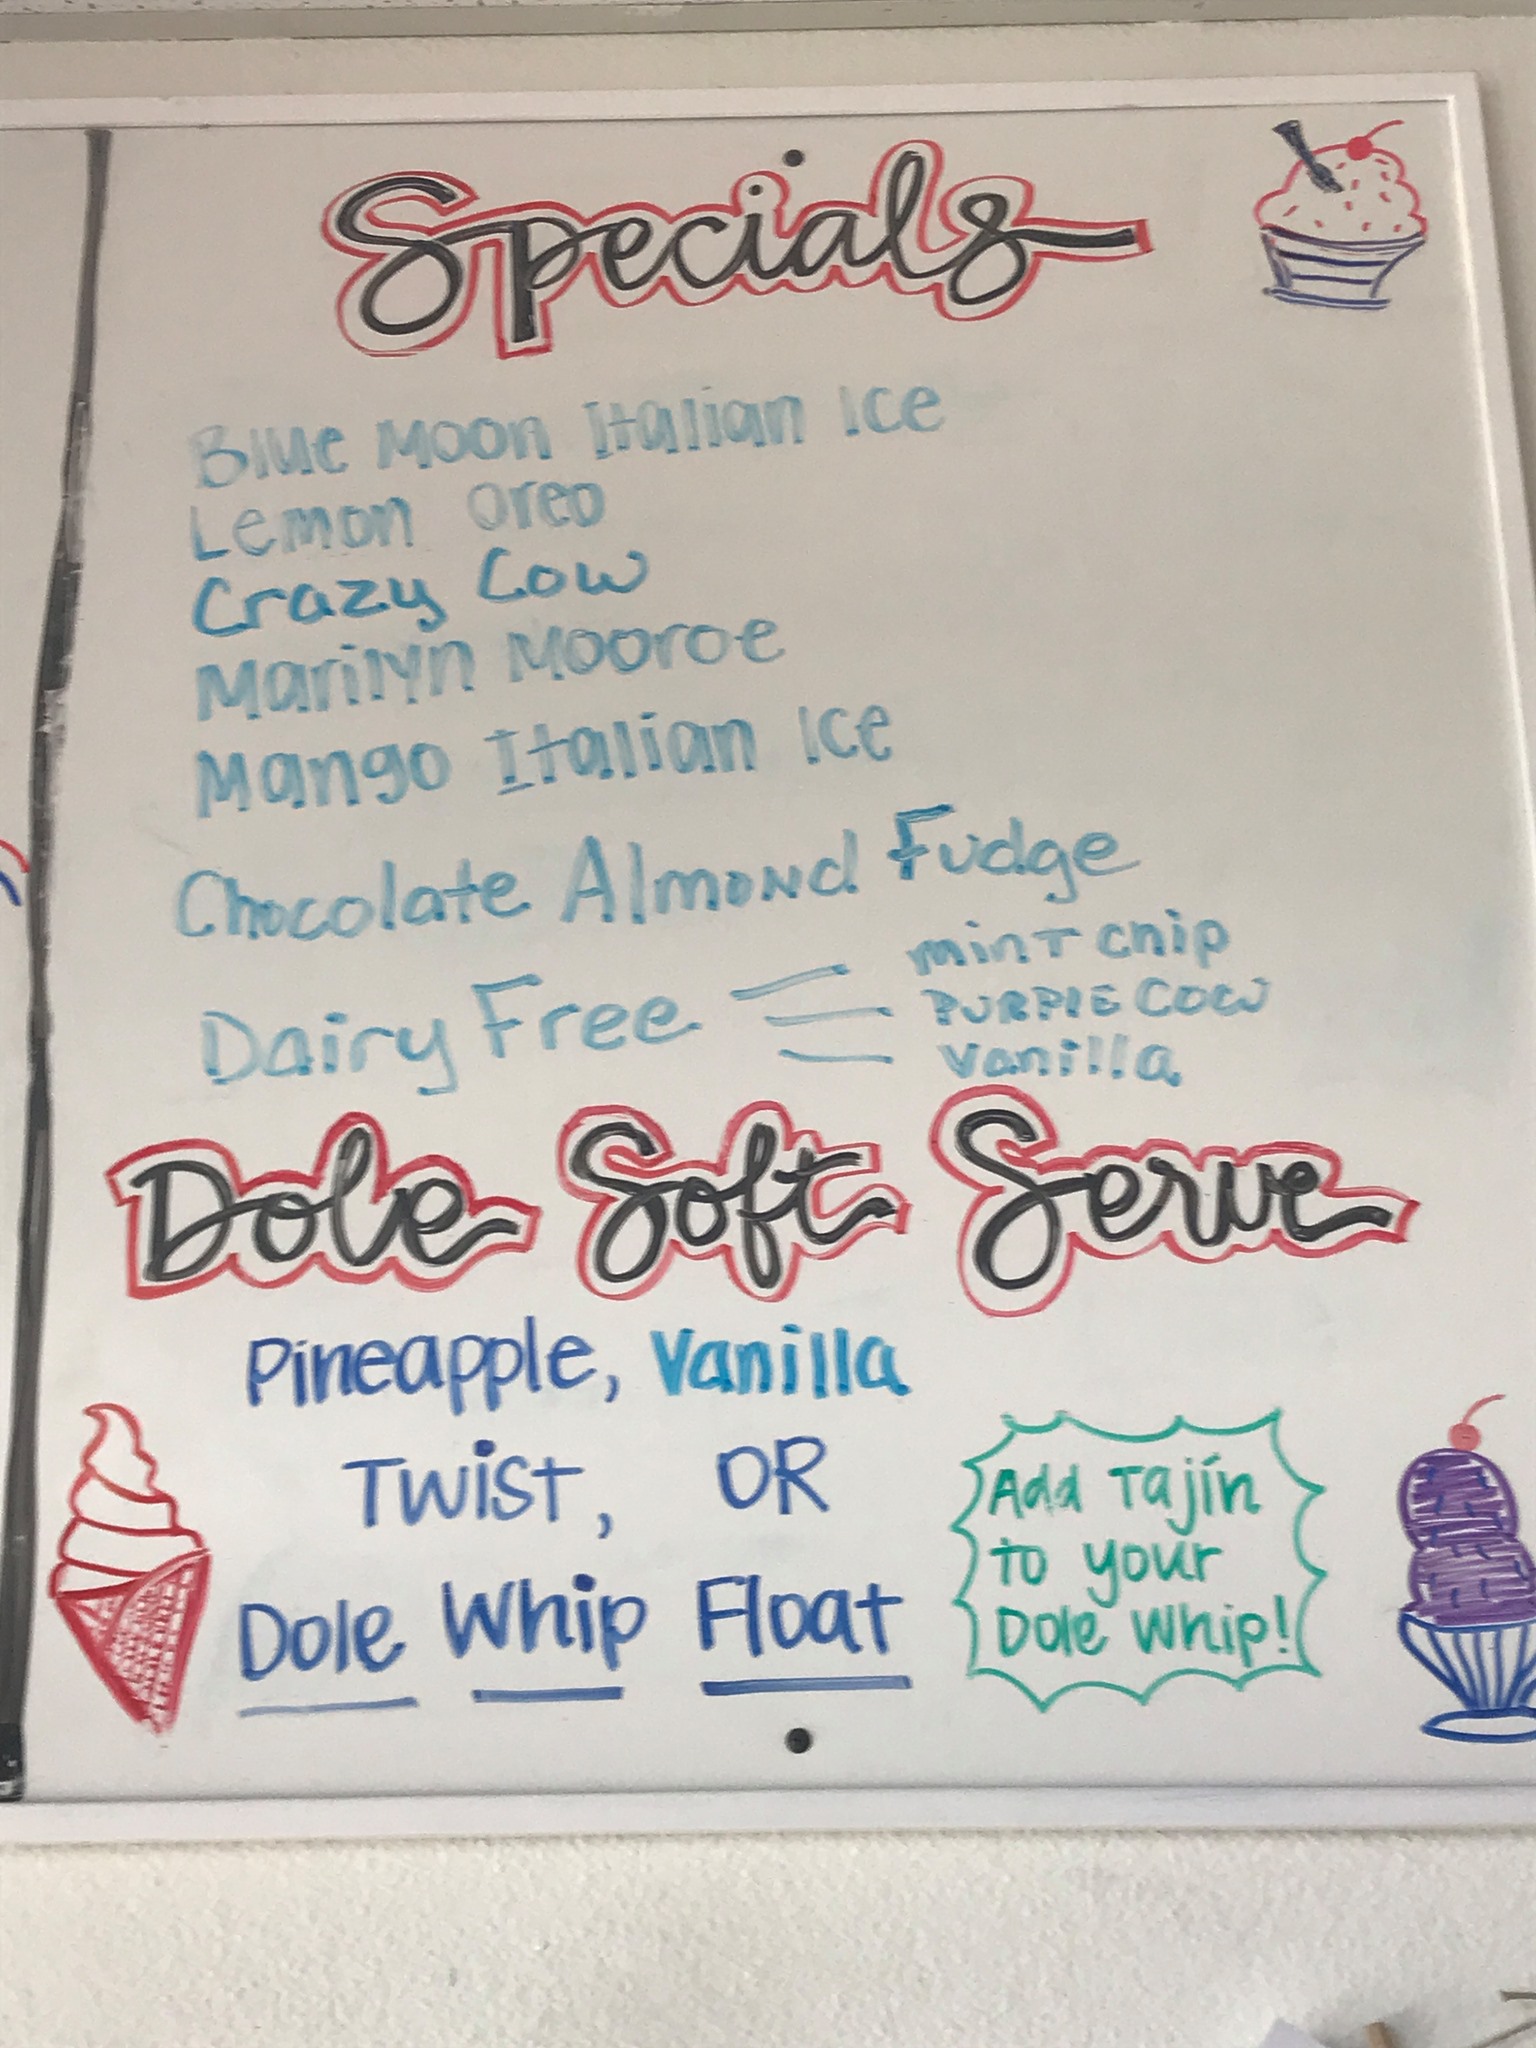 Specials
Blue Moon Italian Ice
Lemon Oreo
Crazy Cow
Marilyn Mooroe
Mango Italian Ice
Chocolate Almond Fudge
Dairy Free
mint chip
PURPLE COW
Vanilla
Dole Soft Serve
Pineapple, Vanilla
Twist, OR
Dole Whip Float
Add Tajín
to your
Dole Whip!